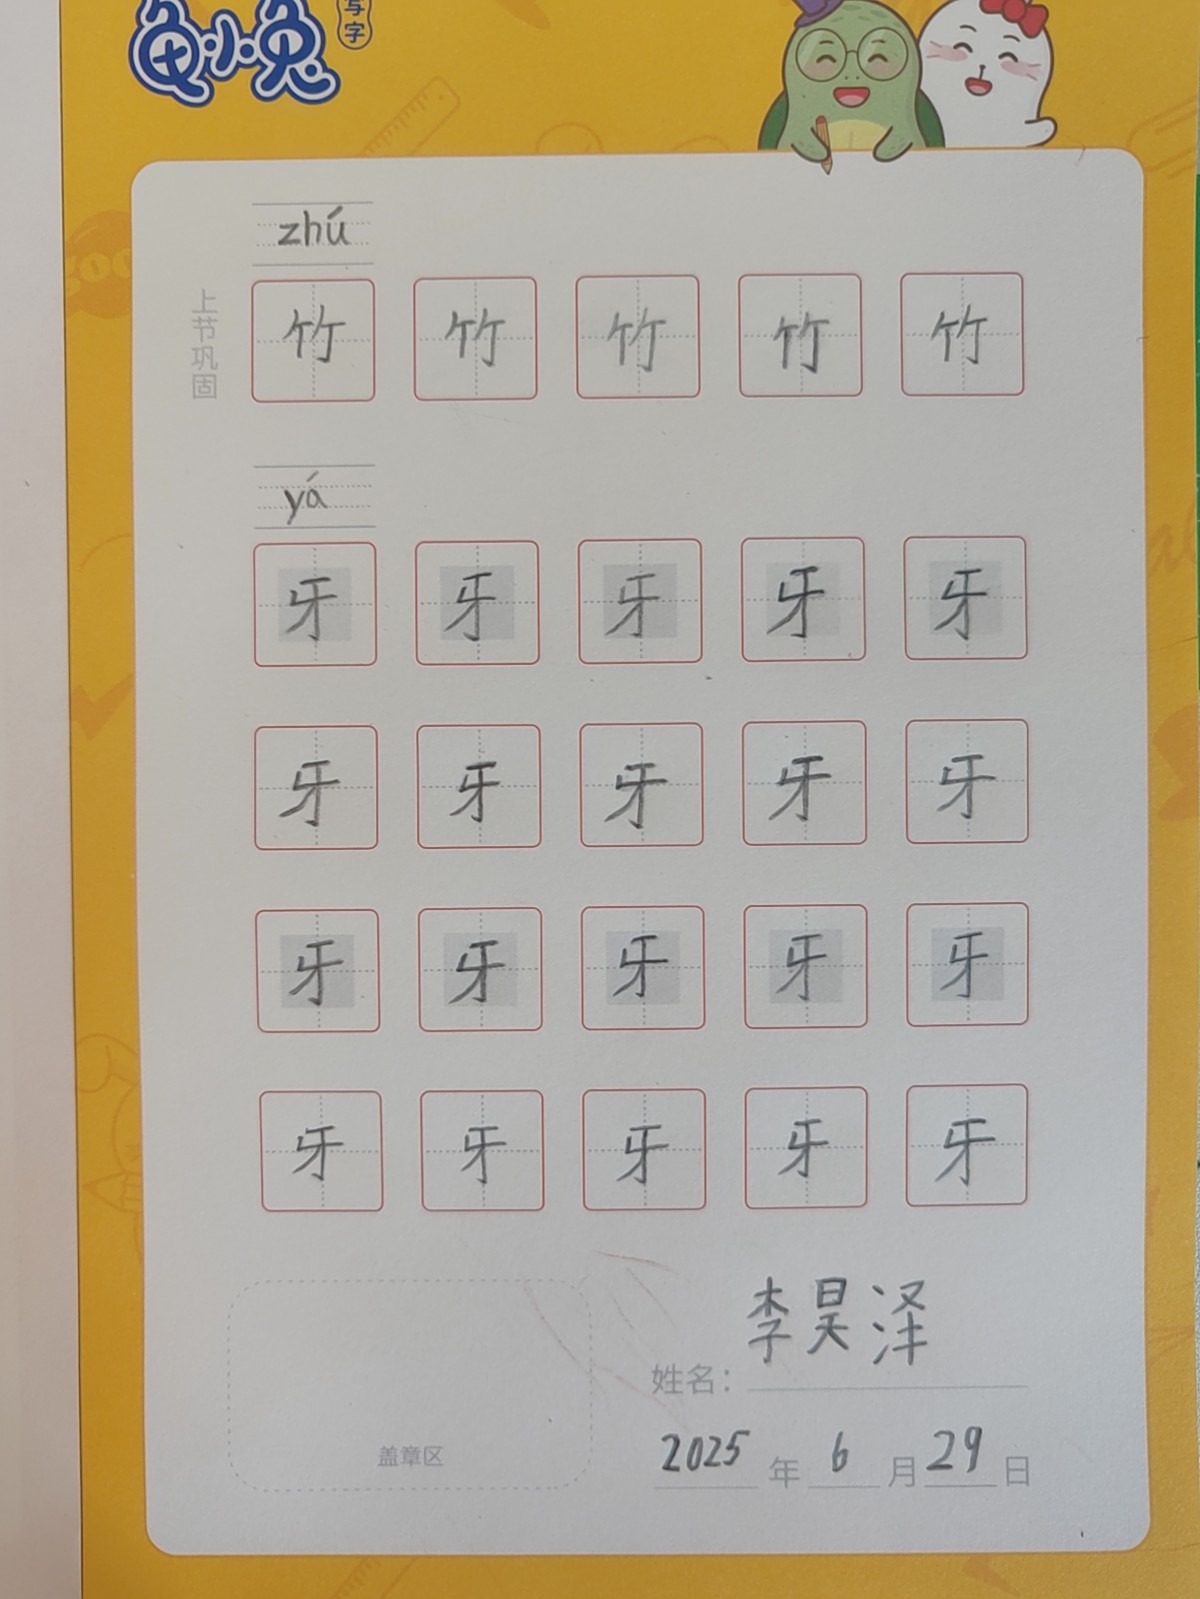 龟小兔
写字
zhú
上节巩固
竹 竹 竹 竹 竹
yá
牙 牙 牙 牙 牙
牙 牙 牙 牙 牙
牙 牙 牙 牙 牙
牙 牙 牙 牙 牙
姓名：李昊泽
盖章区
2025年6月29日